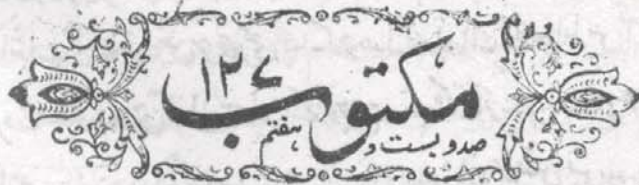 مکتوب ۱۲۷
صد و بست و هفتم